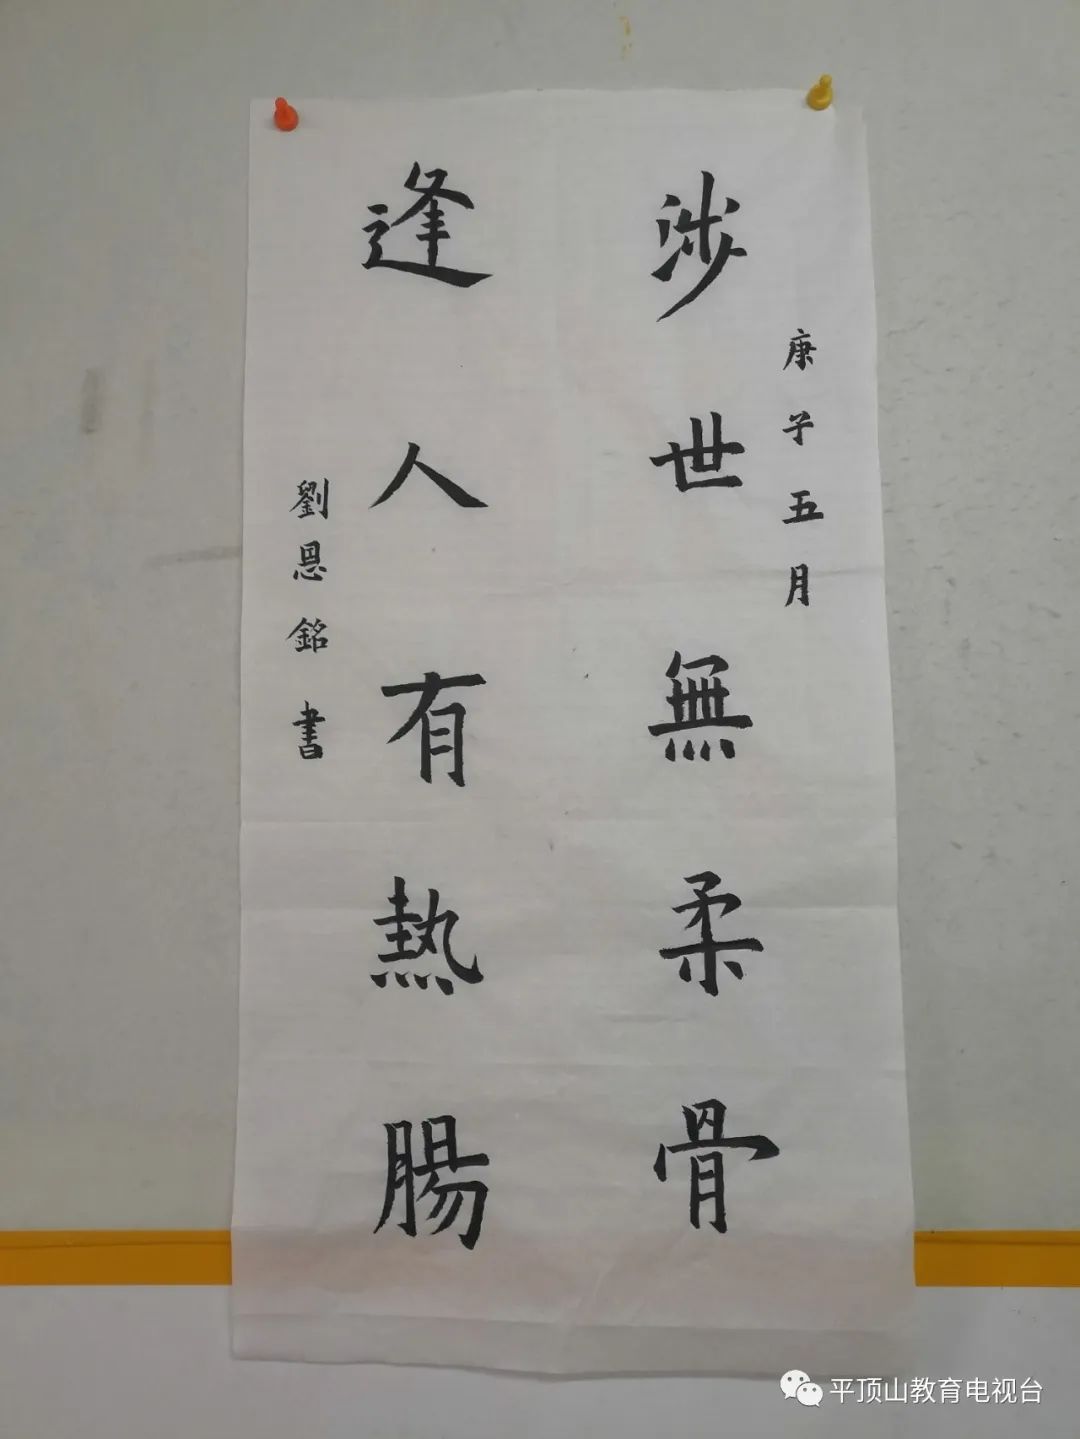 庚子五月
涉世無柔骨
逢人有熱腸
劉恩銘書
平顶山教育电视台